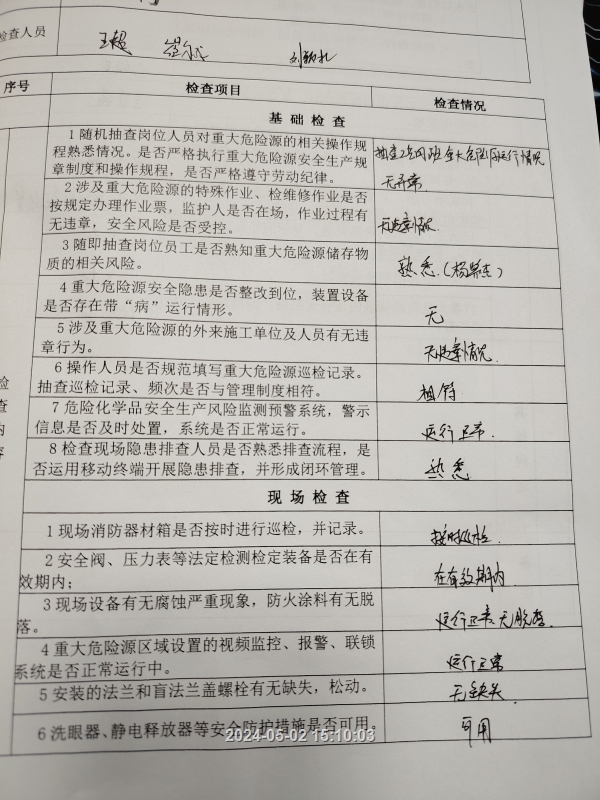 检查人员
王超
序号 检查项目 检查情况
基础检查
1 随机抽查岗位人员对重大危险源的相关操作规
程熟悉情况。是否严格执行重大危险源安全生产规
章制度和操作规程，是否严格遵守劳动纪律。
无异常
2 涉及重大危险源的特殊作业、检维修作业是否
按规定办理作业票，监护人是否在场，作业过程有
无违章，安全风险是否受控。
无违章情况.
3 随即抽查岗位员工是否熟知重大危险源储存物
质的相关风险。
熟悉
4 重大危险源安全隐患是否整改到位，装置设备
是否存在带“病”运行情形。
无
5 涉及重大危险源的外来施工单位及人员有无违
章行为。
无违章情况.
6 操作人员是否规范填写重大危险源巡检记录。
抽查巡检记录、频次是否与管理制度相符。
相符.
7 危险化学品安全生产风险监测预警系统，警示
信息是否及时处置，系统是否正常运行。
运行正常.
8 检查现场隐患排查人员是否熟悉排查流程，是
否运用移动终端开展隐患排查，并形成闭环管理。
熟悉
现场检查
1 现场消防器材箱是否按时进行巡检，并记录。
按时巡检.
2 安全阀、压力表等法定检测检定装备是否在有
效期内；
在有效期内.
3 现场设备有无腐蚀严重现象，防火涂料有无脱
落。
运行正常 无脱落.
4 重大危险源区域设置的视频监控、报警、联锁
系统是否正常运行中。
运行正常
5 安装的法兰和盲法兰盖螺栓有无缺失，松动。
无缺失.
6 洗眼器、静电释放器等安全防护措施是否可用。
可用
2024-05-02 15:10:03